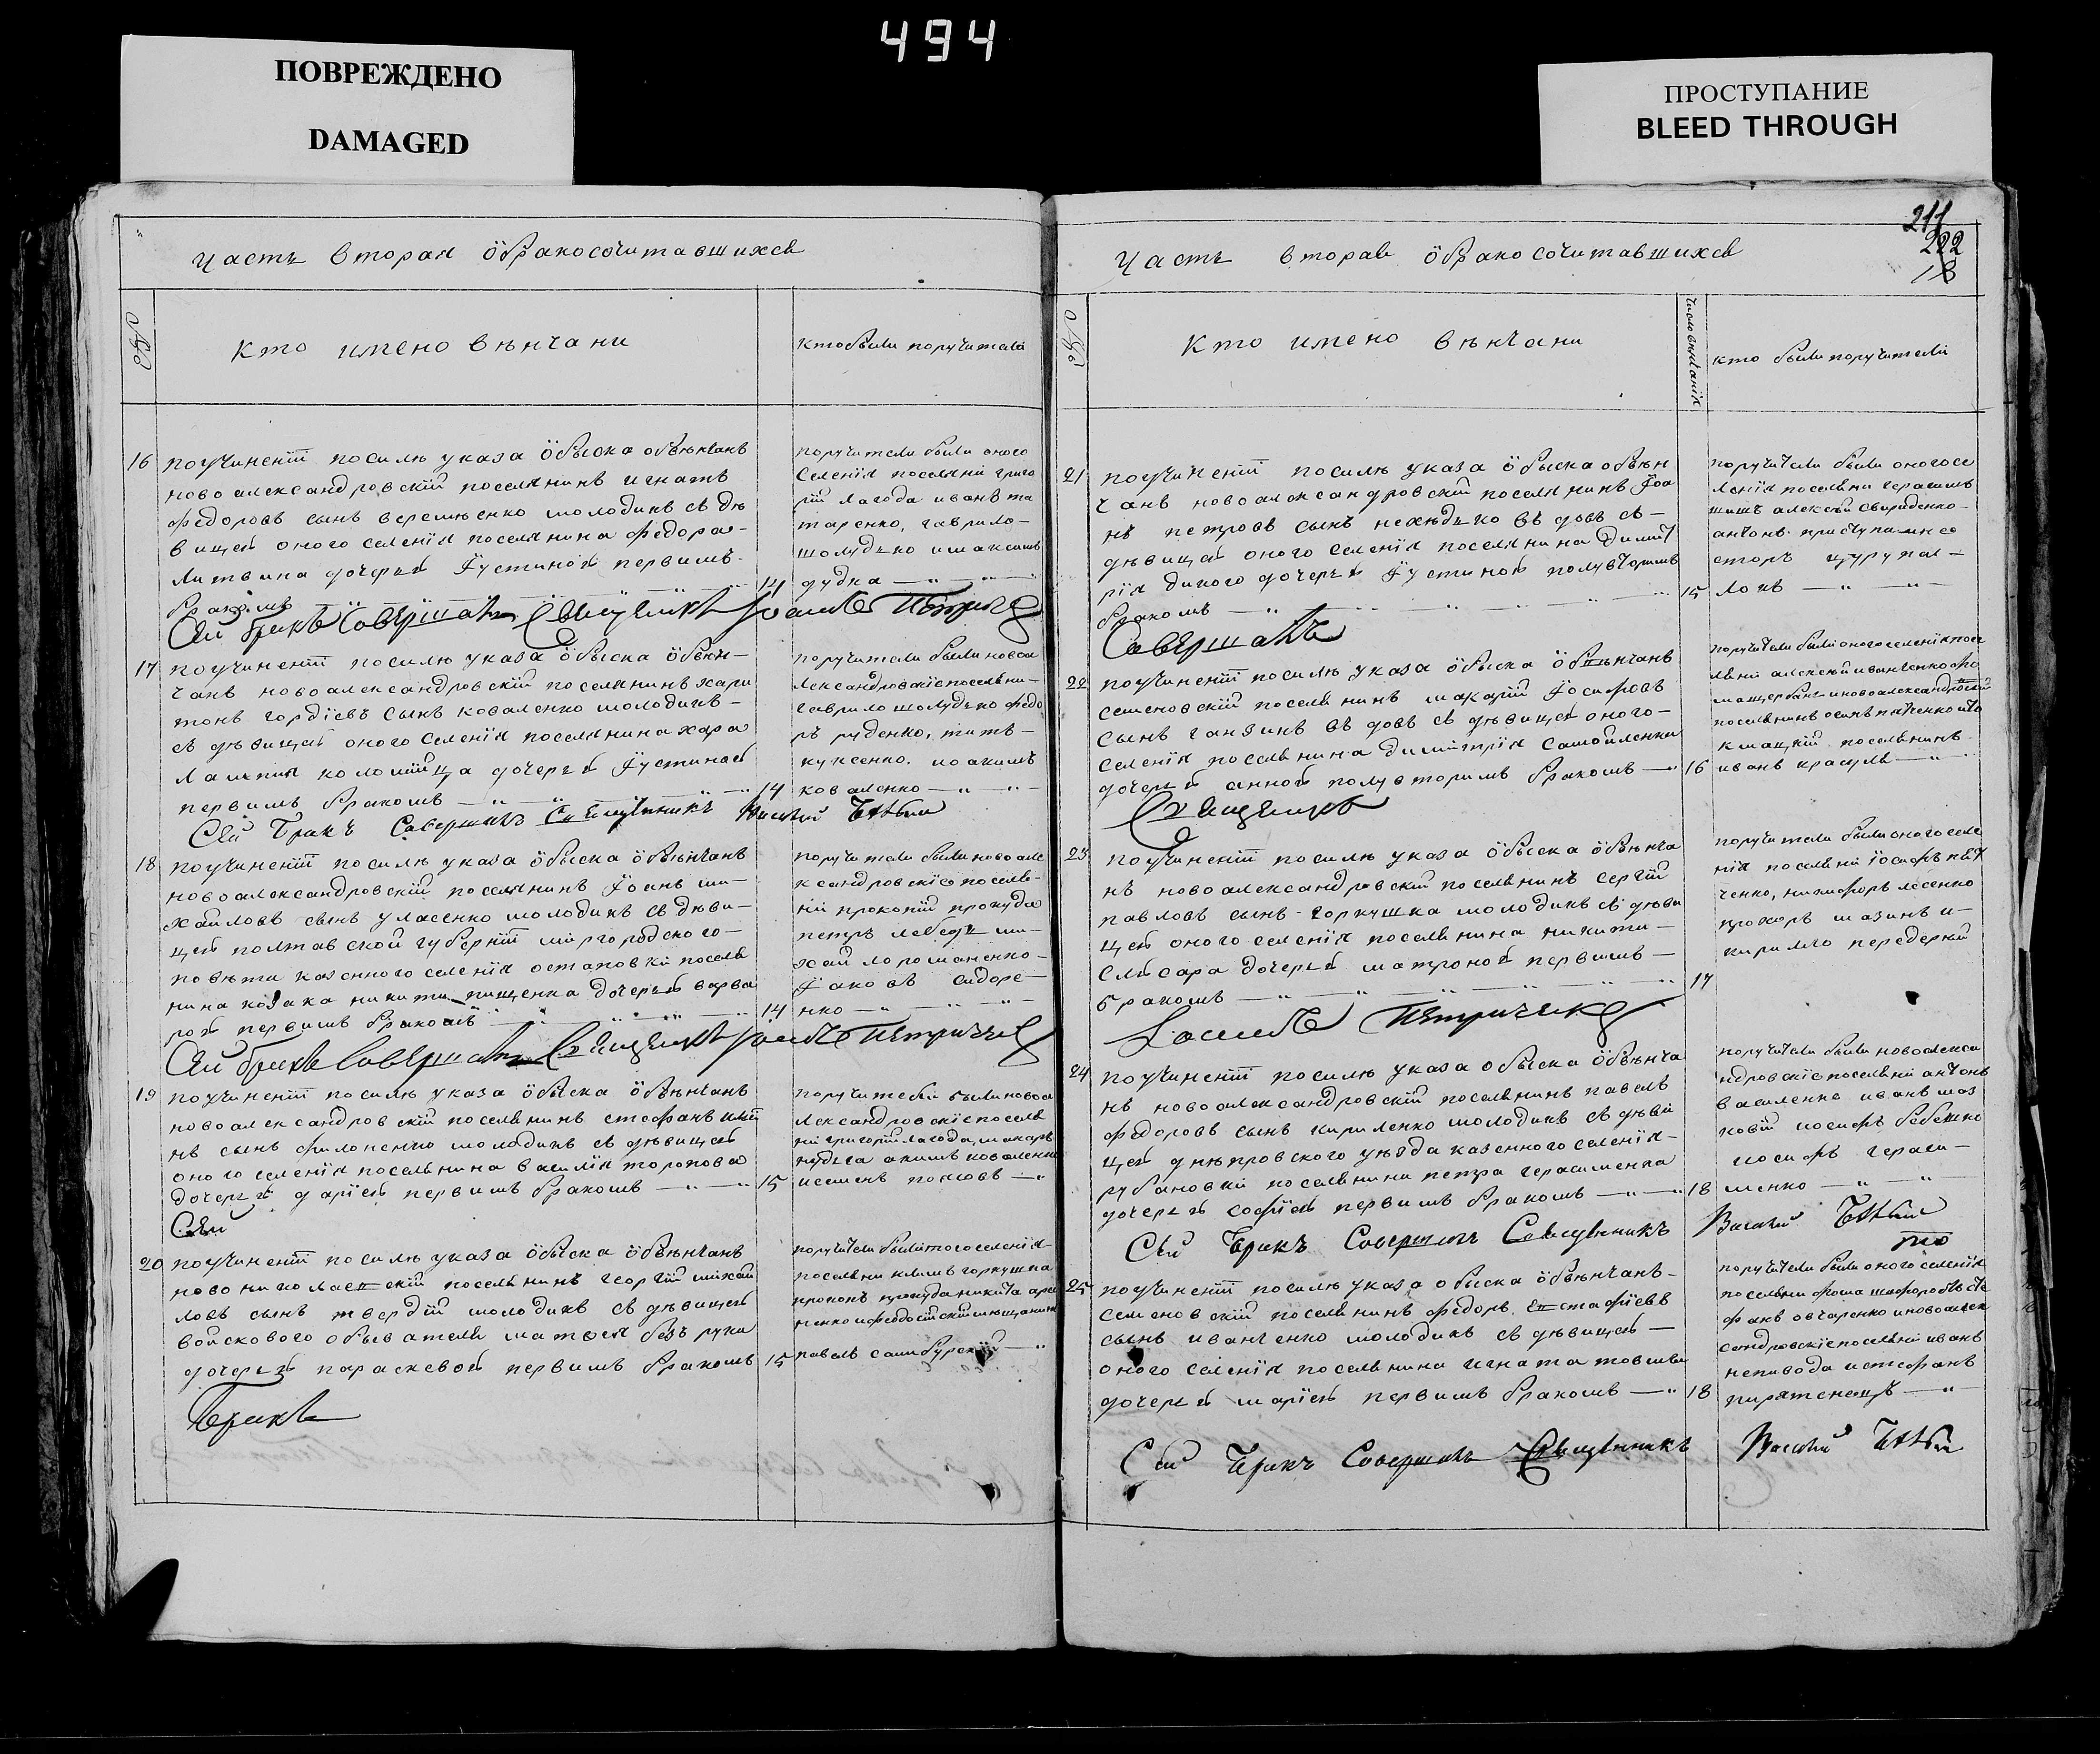 494
ПОВРЕЖДЕНО
DAMAGED
ПРОСТУПАНИЕ
BLEED THROUGH
Часть вторая о бракосочитавшихся
№
кто имено вѣнчани
кто были поручители
16
поучиненіи посилѣ указа обыска обвѣнчанъ
новоалександровскій поселянинъ игнатъ
федоровъ сынъ веремѣенко молодикъ съ дѣ
вицей оного селенія поселянина федора
литвина дочерью Іустиной первимъ
бракомъ
14
поручители были оного
селенія поселяни григо
рій лагода иванъ та
таренко, гаврило
шолудько
дудка
Сей бракъ Совершалъ Священикъ
17
поучиненіи посилѣ указа обыска обвѣн
чанъ новоалександровскій поселянинъ хари
тонъ гордіевъ сынъ коваленко молодикъ
съ дѣвицей оного селенія поселянина хара
лампия коломійца дочерью Іустиной
первимъ бракомъ
14
поручители были новоа
лександровскіе поселяни
гаврило шолудько федо
ръ руденко, титъ
куксенко, иоакимъ
коваленко
Сей Бракъ Совершилъ Священникъ
18
поучиненіи посилѣ указа обыска обвѣнчанъ
новоалександровскій поселянинъ Іоанъ ми
хайловъ сынъ уласенко молодикъ съ дѣви
цей полтавской губерніи миргородского
повѣта казенного селенія остаповки поселя
нина козака никити пищенка дочерью варва
рой первимъ бракомъ
14
поручители были новоале
ксандровскіе поселя
ни прокопій прокуда
петръ лебедь ми
хайло романенко
Іаковъ сидоре
нко
Сей бракъ Совершалъ Священикъ
19
поучиненіи посилѣ указа обыска обвѣнчанъ
новоалександровскій поселянинъ стефанъ
нъ сынъ филоненко молодикъ съ дѣвицей
оного селенія поселянина василія торопова
дочерью даріей первимъ бракомъ
15
поручители были новоа
лександровскіе поселя
ни григорій лагода, макаръ
акимъ коваленко
исеменъ поповъ
Сей
20
поучиненіи посилѣ указа обыска обвѣнчанъ
новониколаевскій поселянинъ георгій михай
ловъ сынъ твердій молодикъ съ дѣвицей
войскового обывателя матвея безъ руки
дочерью параскевой первимъ бракомъ
15
поручители были того селенія
поселяни климъ горкушка
прокопъ прокуда никита
павелъ самбурскій
Бракъ
211
222
18
Часть вторая о бракосочитавшихся
№
кто имено вѣнчани
Число вѣнчанія
кто были поручители
21
поучиненіи посилѣ указа обыска обвѣн
чанъ новоалександровскій поселянинъ Іоа
нъ петровъ сынъ нехѣдько въдовъ съ
дѣвицей оного селенія поселянина димит
рія дикого дочерью Іустиной полувторимъ
бракомъ
15
поручители были оного се
ленія поселяни герасимъ
алексѣй свириденко
антонъ
Совершалъ
22
поучиненіи посилѣ указа обыска обвѣнчанъ
семеновскій поселянинъ макарій Іосифовъ
сынъ ганзинъ въдовъ съ дѣвицей оного
селенія поселянина димитрія самойленки
дочерью анной полувторимъ бракомъ
16
поручители были оного селенія посе
ляни алексей иваненко
и новоалександровскій
поселянинъ осипъ
поселянинъ
иванъ красуля
Священикъ
23
поучиненіи посилѣ указа обыска обвѣнча
нъ новоалександровскій поселянинъ сергій
павловъ сынъ горкушка молодикъ съ дѣви
цей оного селенія поселянина никити
слѣсара дочерью матроной первимъ
бракомъ
17
поручители были оного селе
нія поселяни іосифъ
ченко, никифоръ лесенко
прохоръ мазинъ и
кирилло передерій
24
поучиненіи посилѣ указа обыска обвѣнча
нъ новоалександровскій поселянинъ павелъ
федоровъ сынъ кириленко молодикъ съ дѣви
цей днѣпровского уѣзда казенного селенія
рубановки поселянина петра герасименка
дочерью софіей первимъ бракомъ
18
поручители были новоалекса
ндровскіе поселяни антонъ
василенко иванъ
іосифъ бебешко
иосифъ гераси
менко
Сей Бракъ Совершилъ Священникъ
25
поучиненіи посилѣ указа обыска обвѣнчанъ
семеновскій поселянинъ федоръ евстафіевъ
сынъ иванченко молодикъ съ дѣвицей
оного селенія поселянина игната товшия
дочерью маріей первимъ бракомъ
18
поручители были оного селенія
поселяни фома сте
фанъ овчаренко и новоалек
сандровскіе поселяни иванъ
непивода и стефанъ
пирятенецъ
Сей Бракъ Совершилъ Священникъ